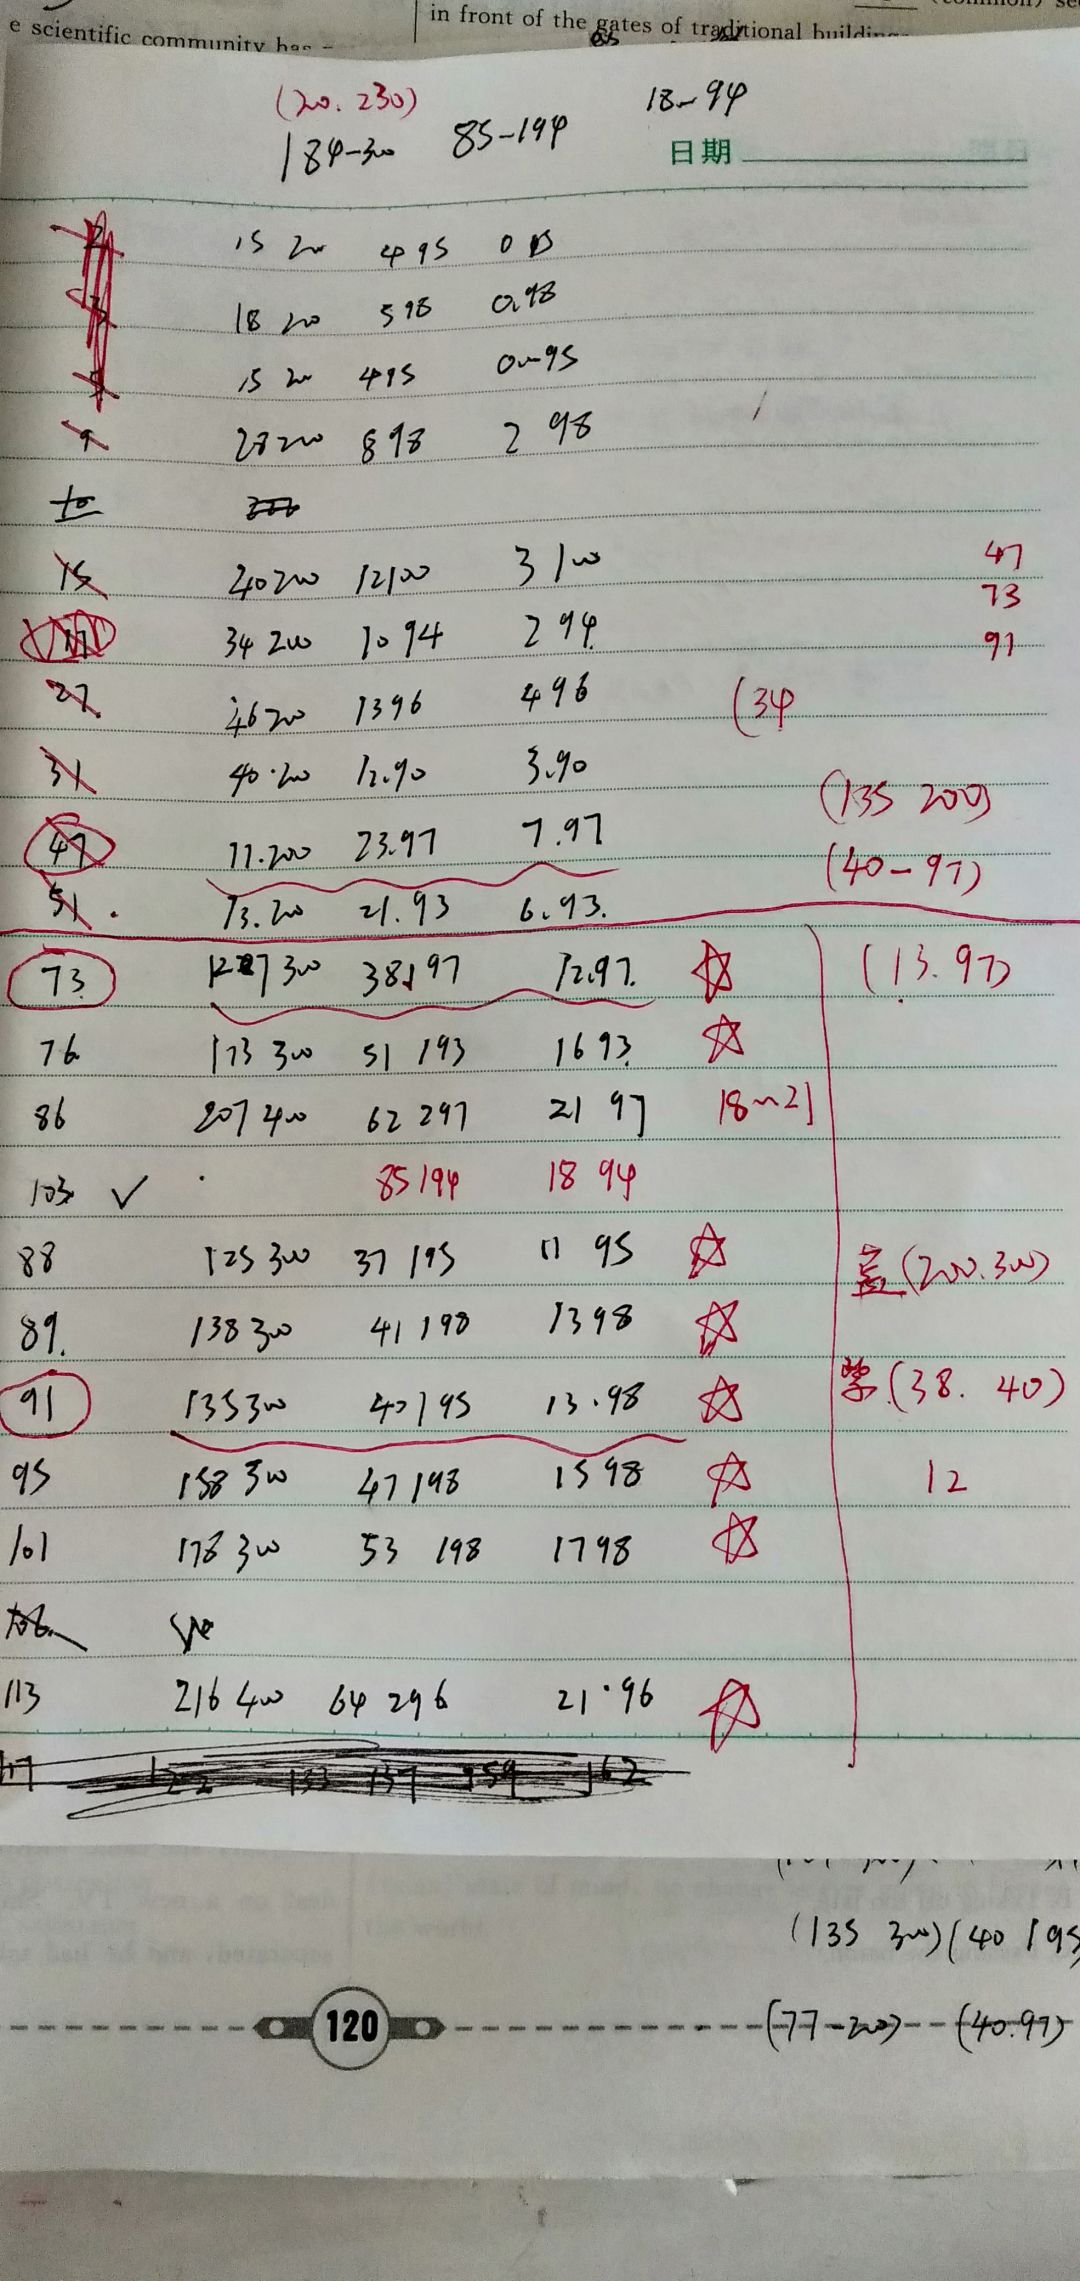 e scientific community has
in front of the gates of traditional buildings
(20. 230)
184-300 85-194 18~94
日期
15 200 4 95 0
18 200 5 98 0.98
15 200 4 95 0~95
9 28 200 8 98 2 98
15 40 200 12 100 3 100
47
73
17 34 200 10 94 2 94.
91
27 46 200 13 96 4 96
(34
31 40.200 12.90 3.90
(135 200)
47 77.200 23.97 7.97
(40-97)
51. 73.200 21.93 6.93.
73. 127 300 38 197 12.97. ☆
(13.97)
76 173 300 51 193 16 93 ☆
86 207 400 62 297 21 97 18~21
103 ✓ 85 194 18 94
88 125 300 37 195 11 95 ☆
(200.300)
89. 138 300 41 198 13 98 ☆
91 135 300 40 195 13.98 ☆
(38. 40)
95 158 300 47 198 15 98 ☆
12
101 178 300 53 198 17 98 ☆
113 216 400 64 296 21.96 ☆
117 122 133 137 159 162
(135 300)(40 195
120
(77-200) (40.97)